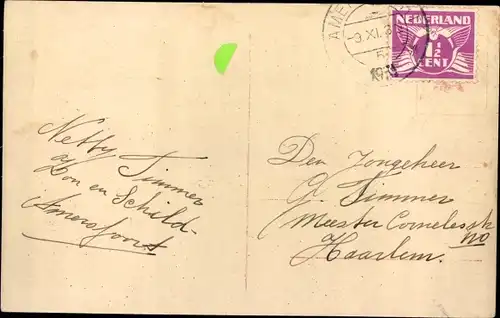 AME
-9.XI.
5
19
NEDERLAND
1½
CENT
Netty Timmer
Zon en Schild-
Amersfoort
Den Jongeheer
G. Timmer
Meester Cornelesstr
No
Haarlem.